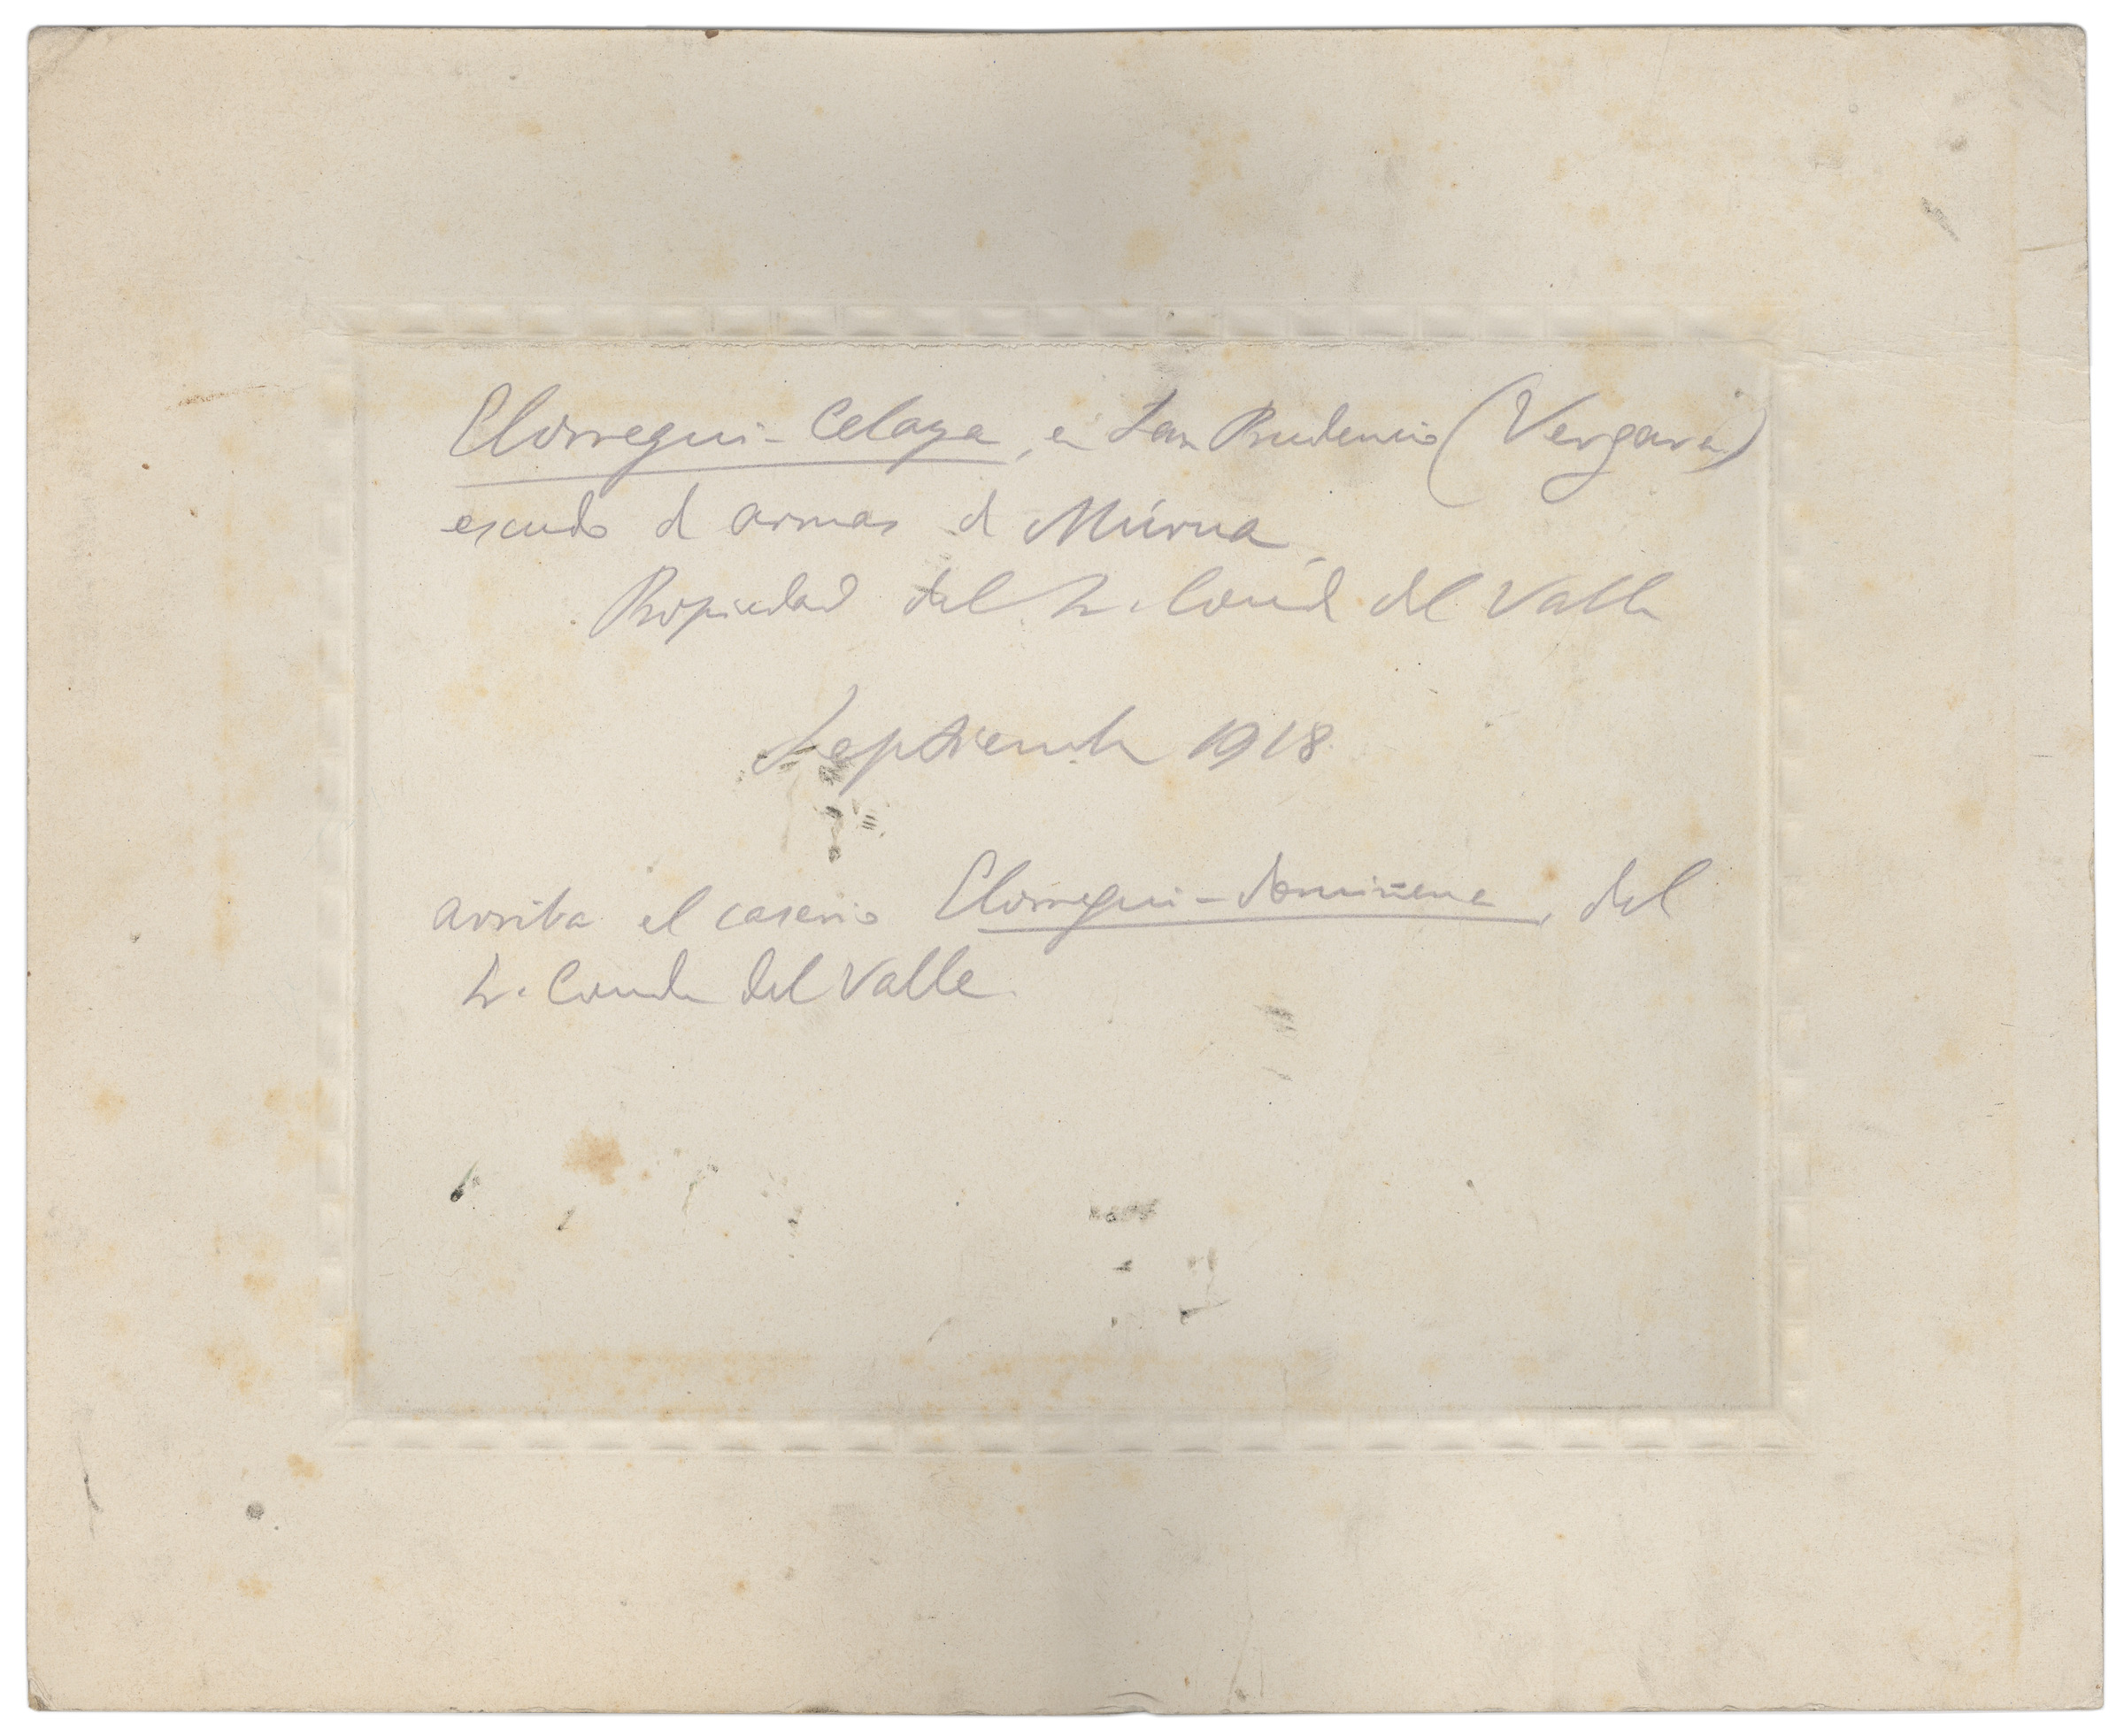 Elorregui-Celaya, en San Prudencio (Vergara)
escudo de armas de Múrua,
Propiedad del Sr. Conde del Valle
Septiembre 1918
arriba el caserio Elorregui-domiñene, del
Sr. Conde del Valle.